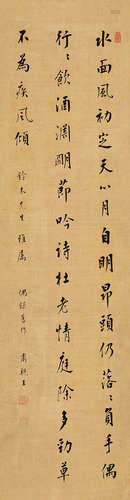 水面風初定天心月自明昂頭仍落落負手偶
行行飲酒淵明節吟詩杜老情庭除多勁草
不為疾風傾
鈴木先生雅屬
偶録舊作
肅親王